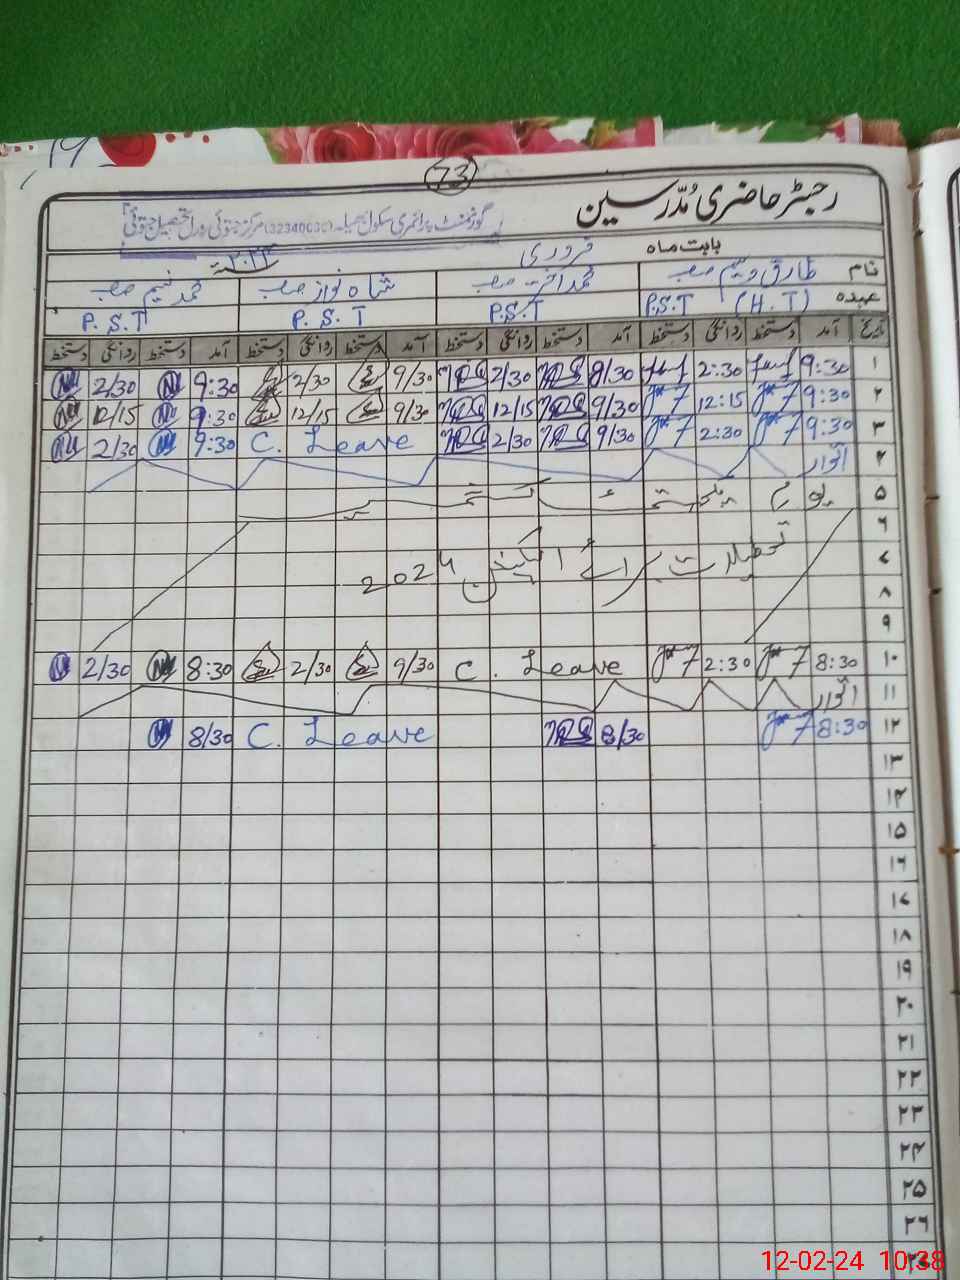 19
73
رجسٹر حاضری مُدرسین
گورنمنٹ پرائمری سکول (32340030) مرکز جتوئی تحصیل جتوئی
بابت ماہ فروری ۲۰۲۴
نام طارق وسیم صاحب محمد اختر صاحب شاہ نواز صاحب محمد نسیم صاحب
عہدہ P.S.T (H.T) P.S.T P.S.T P.S.T
تاریخ آمد دستخط روانگی دستخط آمد دستخط روانگی دستخط آمد دستخط روانگی دستخط آمد دستخط روانگی دستخط
۱ 9:30 2:30 8/30 2/30 9/30 2/30 9:30 2/30
۲ 9:30 12:15 9/30 12/15 9/30 12/15 9:30 12/15
۳ 9:30 2:30 9/30 2/30 C. Leave 9:30 2/30
۴ اتوار
۵ یوم یکجہتی کشمیر
۶
۷ تعطیلات برائے الیکشن 2024
۸
۹
۱۰ 8:30 2:30 C. Leave 9/30 2/30 8:30 2/30
۱۱ اتوار
۱۲ 8:30 8/30 C. Leave 8/30
۱۳
۱۴
۱۵
۱۶
۱۷
۱۸
۱۹
۲۰
۲۱
۲۲
۲۳
۲۴
۲۵
۲۶
12-02-24 10:38